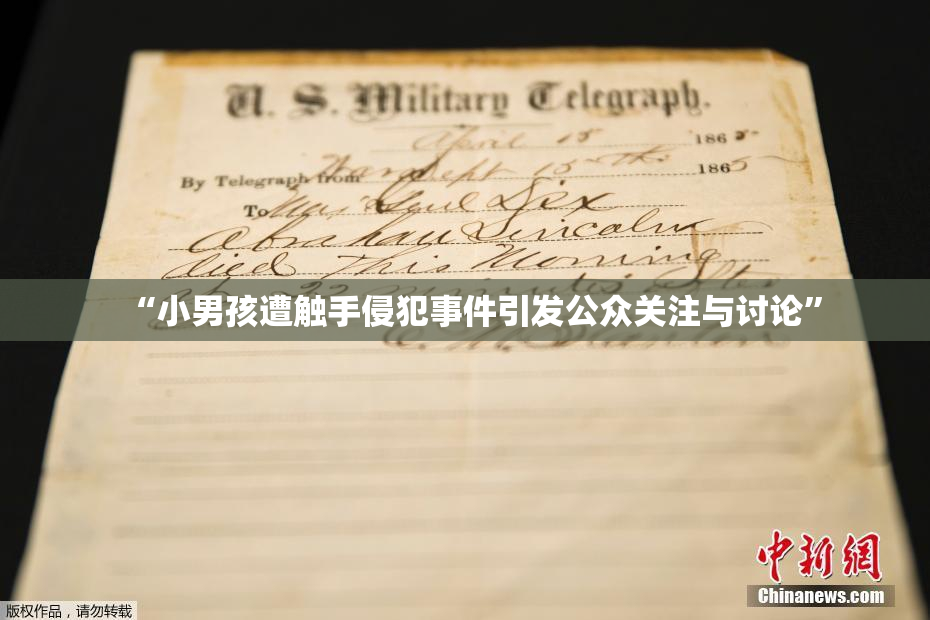 U. S. Military Telegraph.
April 15 1865
By Telegraph from War Dept 15th 1865
To Maj Genl Dix
Abraham Lincoln
died This Morning
at 22 minutes after
“小男孩遭触手侵犯事件引发公众关注与讨论”
E. M. Stanton
中新網
Chinanews.com
版权作品，请勿转载